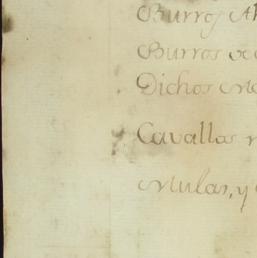 Burros
Burros de
Dichos
Cavallos
Mulas, y